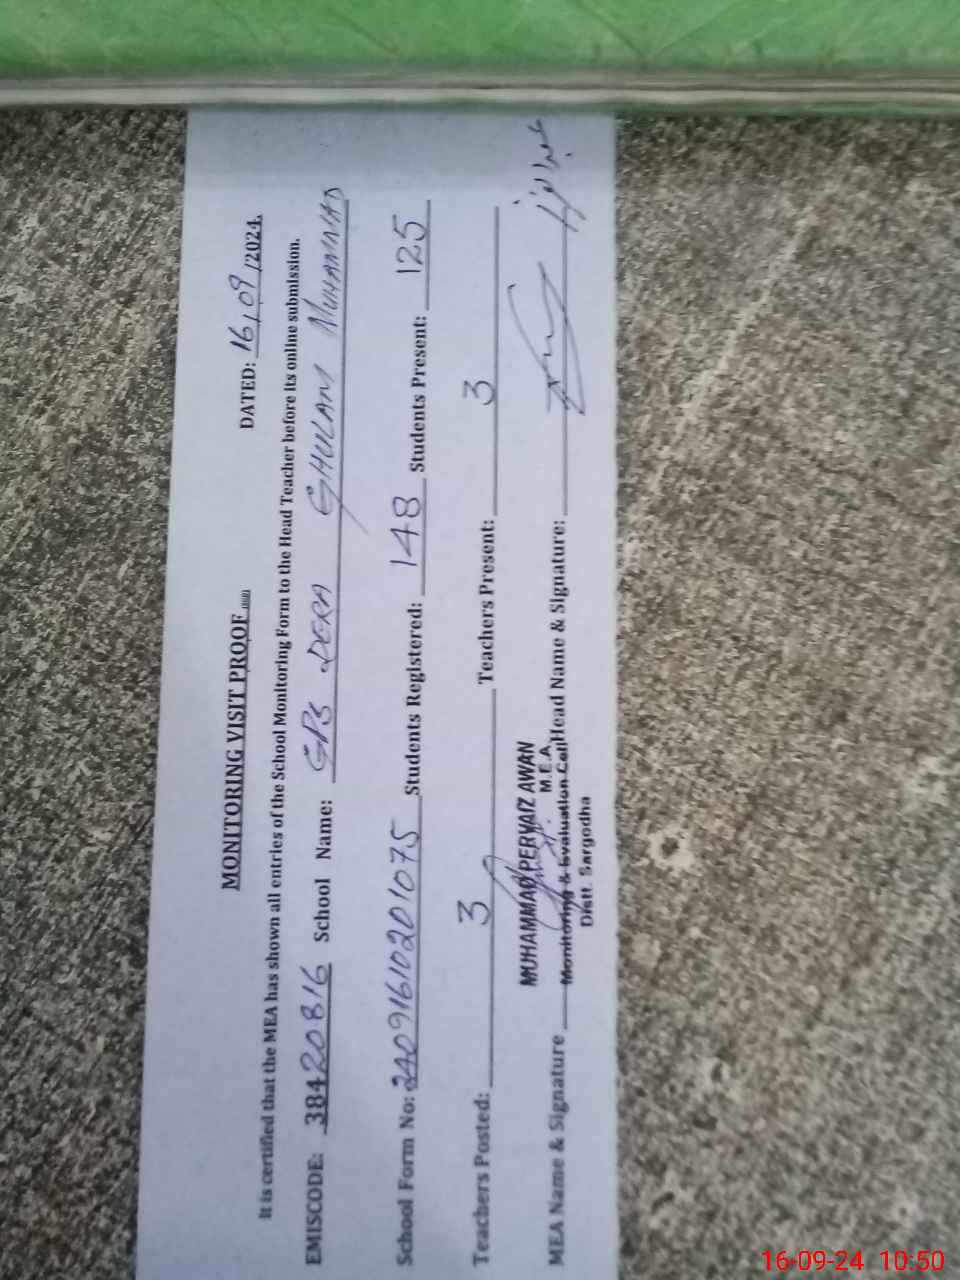 MONITORING VISIT PROOF
DATED: 16/09/2024.
It is certified that the MEA has shown all entries of the School Monitoring Form to the Head Teacher before its online submission.
EMISCODE: 38420816 School Name: GPS DERA GHULAM MUHAMMAD
School Form No: 2409161020201075 Students Registered: 148 Students Present: 125
Teachers Posted: 3 Teachers Present: 3
MEA Name & Signature Head Name & Signature:
MUHAMMAD PERVAIZ AWAN
M.E.A.
Monitoring & Evaluation Cell
Distt. Sargodha
16-09-24 10:50